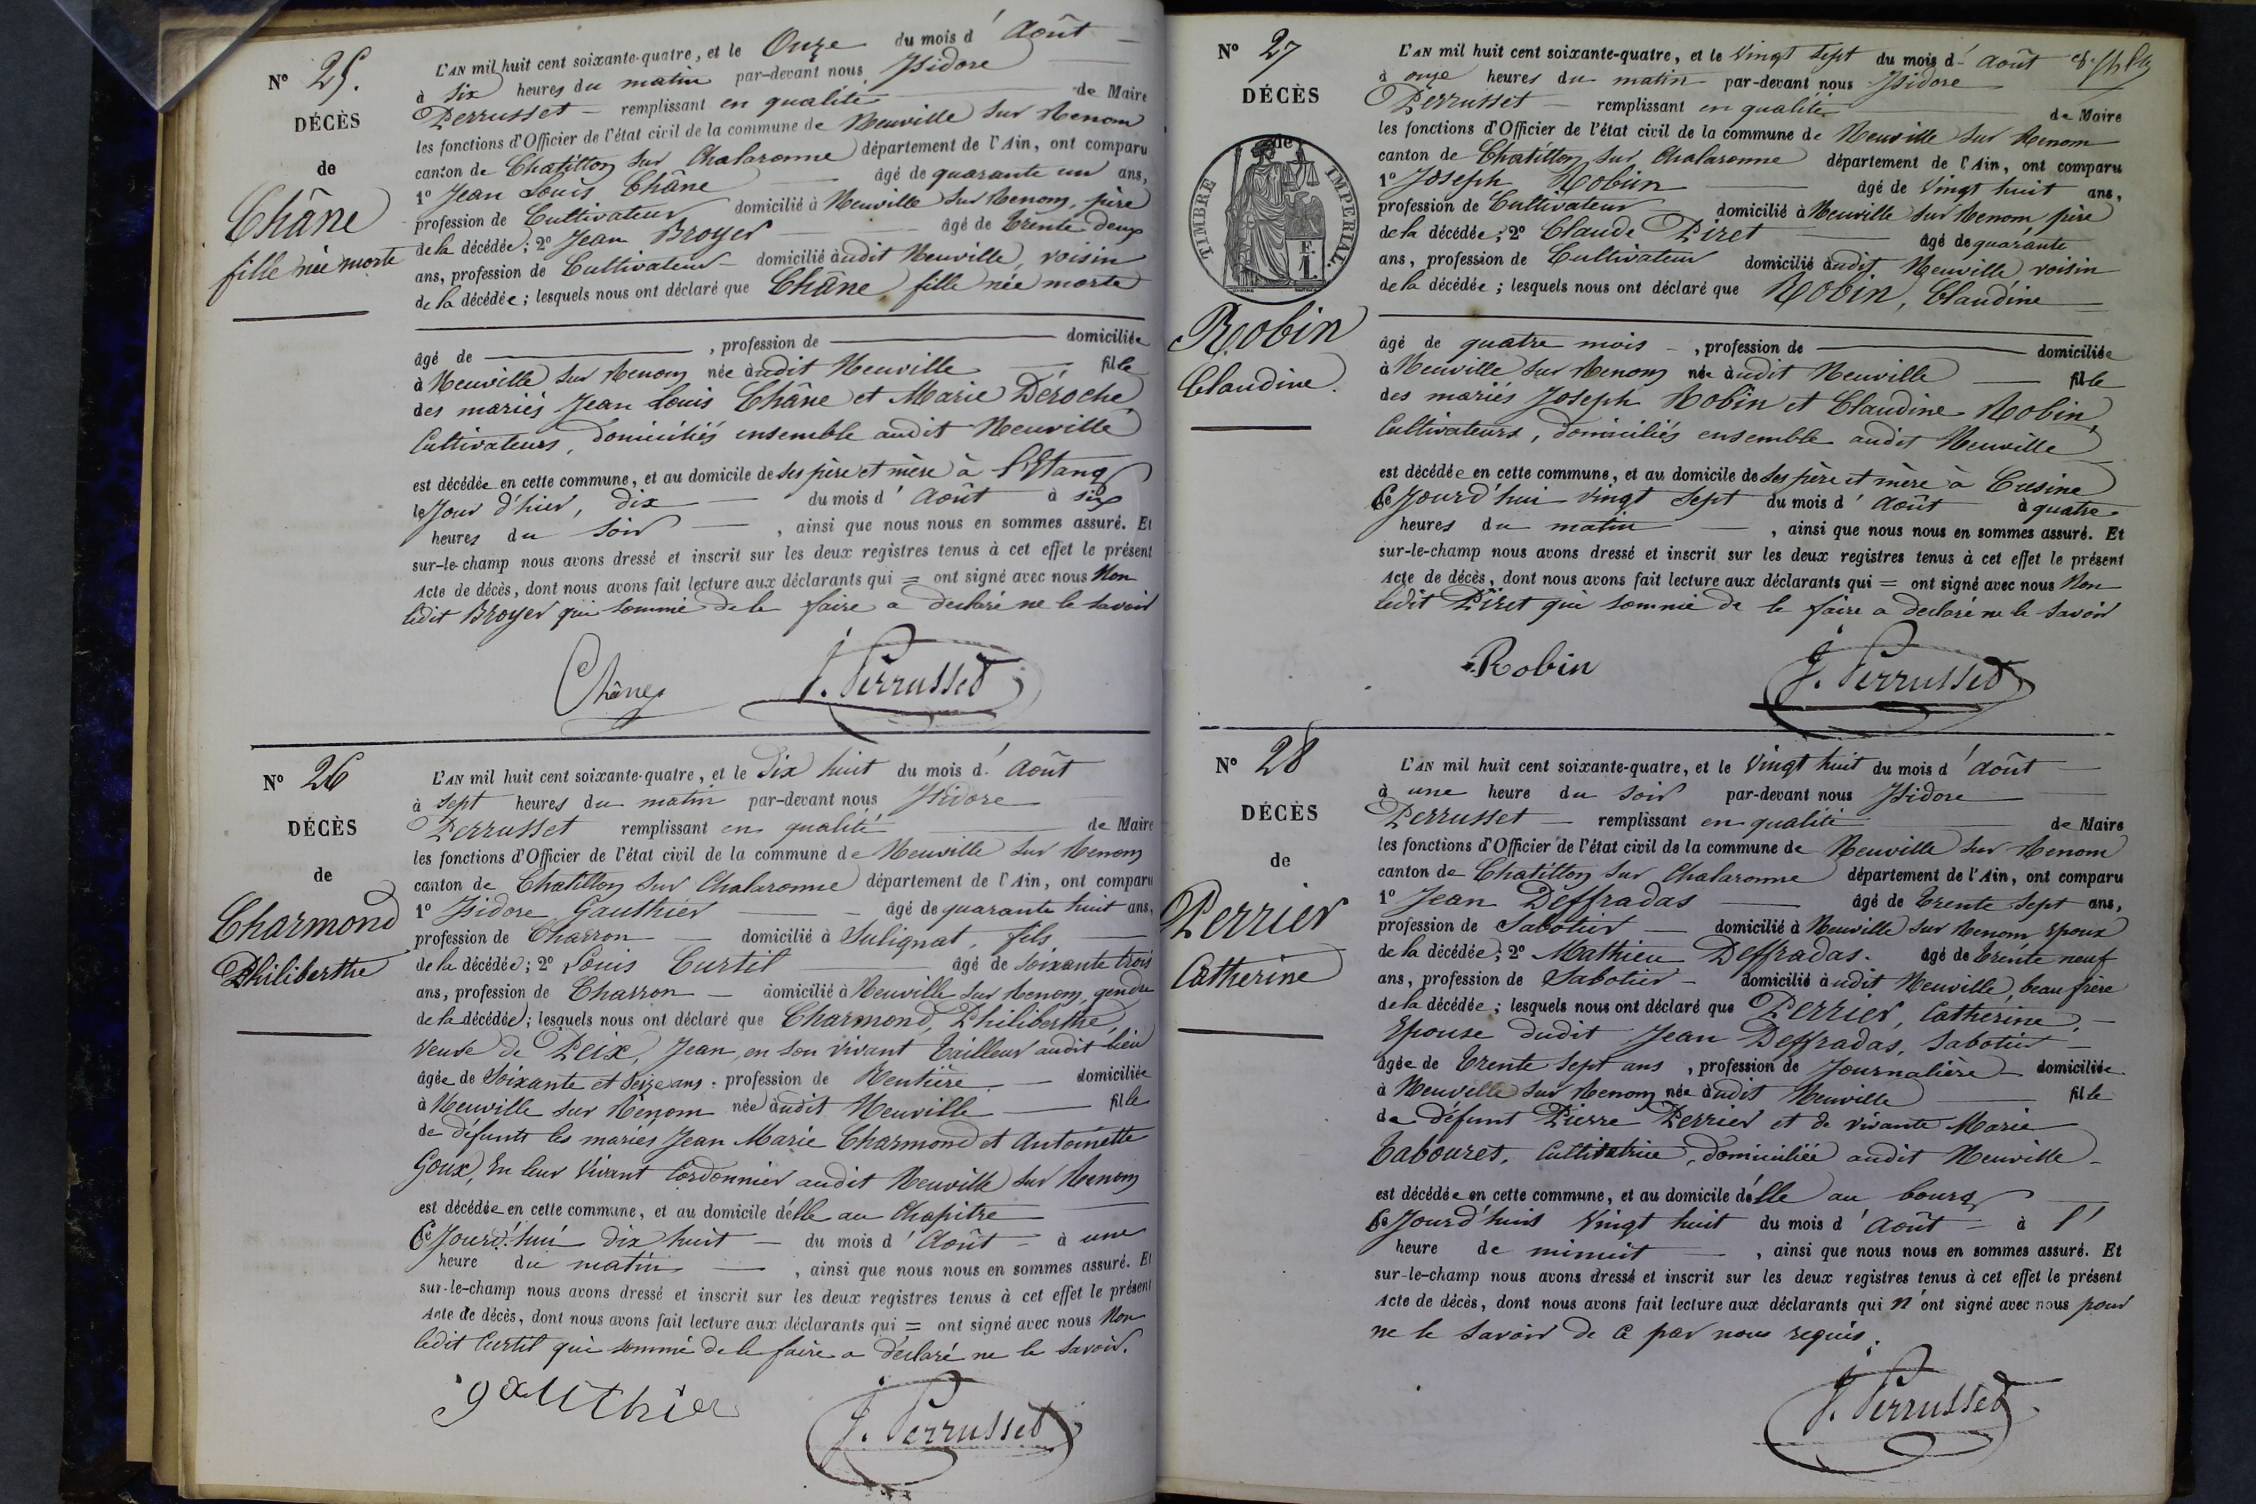 N° 25.
DÉCÈS
de
Châne
fille née morte
L'AN mil huit cent soixante-quatre, et le Onze du mois d' Août
à six heures du matin par-devant nous Isidore
Perrusset remplissant en qualité de Maire
les fonctions d'Officier de l'état civil de la commune de Neuville sur Renom
canton de Chatillon sur Chalaronne département de l'Ain, ont comparu
1° Jean Louis Châne âgé de quarante un ans,
profession de Cultivateur domicilié à Neuville sur Renom, père
de la décédée; 2° Jean Broyer âgé de trente deux
ans, profession de Cultivateur domicilié àudit Neuville, voisin
de la décédée; lesquels nous ont déclaré que Châne, fille née morte
âgé de , profession de domiciliée
à Neuville sur Renom née àudit Neuville fille
des mariés Jean Louis Châne et Marie Déroche
Cultivateurs, domiciliés ensemble audit Neuville
est décédée en cette commune, et au domicile de ses père et mère à l'Etang
le Jour d'hier, dix du mois d' Août à six
heures du soir , ainsi que nous nous en sommes assuré. Et
sur-le-champ nous avons dressé et inscrit sur les deux registres tenus à cet effet le présent
Acte de décès, dont nous avons fait lecture aux déclarants qui = ont signé avec nous Non
ledit Broyer qui sommé de le faire a declaré ne le savoir
Châne J. Perrusset
N° 26
DÉCÈS
de
Charmond
Philiberthe
L'AN mil huit cent soixante-quatre, et le Dix huit du mois d' Août
à sept heures du matin par-devant nous Isidore
Perrusset remplissant en qualité de Maire
les fonctions d'Officier de l'état civil de la commune de Neuville sur Renom
canton de Chatillon sur Chalaronne département de l'Ain, ont comparu
1° Isidore Gauthier âgé de quarante huit ans,
profession de Charron domicilié à Sulignat, fils
de la décédée; 2° Louis Curtil âgé de soixante trois
ans, profession de Charron domicilié à Neuville sur Renom, gendre
de la décédée; lesquels nous ont déclaré que Charmond, Philiberthe,
veuve de Peix, Jean, en son vivant tailleur audit lieu
âgée de Soixante et Seize ans, profession de Rentière domiciliée
à Neuville sur Renom née àudit Neuville fille
de défunts les mariés Jean Marie Charmond et Antoinette
Goux, En leur vivant Cordonnier audit Neuville sur Renom
est décédée en cette commune, et au domicile d'elle au Chapitre
Ce Jourd'hui dix huit du mois d' Août à une
heure du matin , ainsi que nous nous en sommes assuré. Et
sur-le-champ nous avons dressé et inscrit sur les deux registres tenus à cet effet le présent
Acte de décès, dont nous avons fait lecture aux déclarants qui = ont signé avec nous Non
ledit Curtil qui sommé de le faire a déclaré ne le savoir.
gauthier J. Perrusset
N° 27
DÉCÈS
de
TIMBRE IMPERIAL.
Robin
Claudine.
L'AN mil huit cent soixante-quatre, et le Vingt sept du mois d' Août
à onze heures du matin par-devant nous Isidore
Perrusset remplissant en qualité de Maire
les fonctions d'Officier de l'état civil de la commune de Neuville sur Renom
canton de Chatillon sur Chalaronne département de l'Ain, ont comparu
1° Joseph Robin âgé de Vingt huit ans,
profession de Cultivateur domicilié à Neuville sur Renom père
de la décédée; 2° Claude Piret âgé de quarante
ans, profession de Cultivateur domicilié àudit Neuville voisin
de la décédée; lesquels nous ont déclaré que Robin, Claudine
âgé de quatre mois , profession de domiciliée
à Neuville sur Renom née àudit Neuville fille
des mariés Joseph Robin et Claudine Robin,
Cultivateurs, domiciliés ensemble audit Neuville
est décédée en cette commune, et au domicile de ses père et mère à Cusine
Ce Jourd'hui vingt sept du mois d' Août à quatre
heures du matin , ainsi que nous nous en sommes assuré. Et
sur-le-champ nous avons dressé et inscrit sur les deux registres tenus à cet effet le présent
Acte de décès, dont nous avons fait lecture aux déclarants qui = ont signé avec nous Non
ledit Piret qui sommé de le faire a declaré ne le savoir
Robin J. Perrusset
N° 28
DÉCÈS
de
Perrier
Catherine
L'AN mil huit cent soixante-quatre, et le Vingt huit du mois d' Août
à une heure du soir par-devant nous Isidore
Perrusset remplissant en qualité de Maire
les fonctions d'Officier de l'état civil de la commune de Neuville sur Renom
canton de Chatillon sur Chalaronne département de l'Ain, ont comparu
1° Jean Deffradas âgé de trente sept ans,
profession de Sabotier domicilié à Neuville sur Renom Epoux
de la décédée; 2° Mathieu Deffradas. âgé de trente neuf
ans, profession de Sabotier domicilié àudit Neuville, beau frère
de la décédée; lesquels nous ont déclaré que Perrier, Catherine,
Epouse dudit Jean Deffradas, Sabotier
âgée de trente sept ans , profession de Journalière domiciliée
à Neuville sur Renom née àudit Neuville fille
de défunt Pierre Perrier et de vivante Marie
Tabouret, Cultivatrice, domiciliée audit Neuville
est décédée en cette commune, et au domicile d'elle au bourg
Ce Jourd'hui Vingt huit du mois d' Août à l'
heure de minuit , ainsi que nous nous en sommes assuré. Et
sur-le-champ nous avons dressé et inscrit sur les deux registres tenus à cet effet le présent
Acte de décès, dont nous avons fait lecture aux déclarants qui n'ont signé avec nous pour
ne le savoir de ce par nous requis.
J. Perrusset